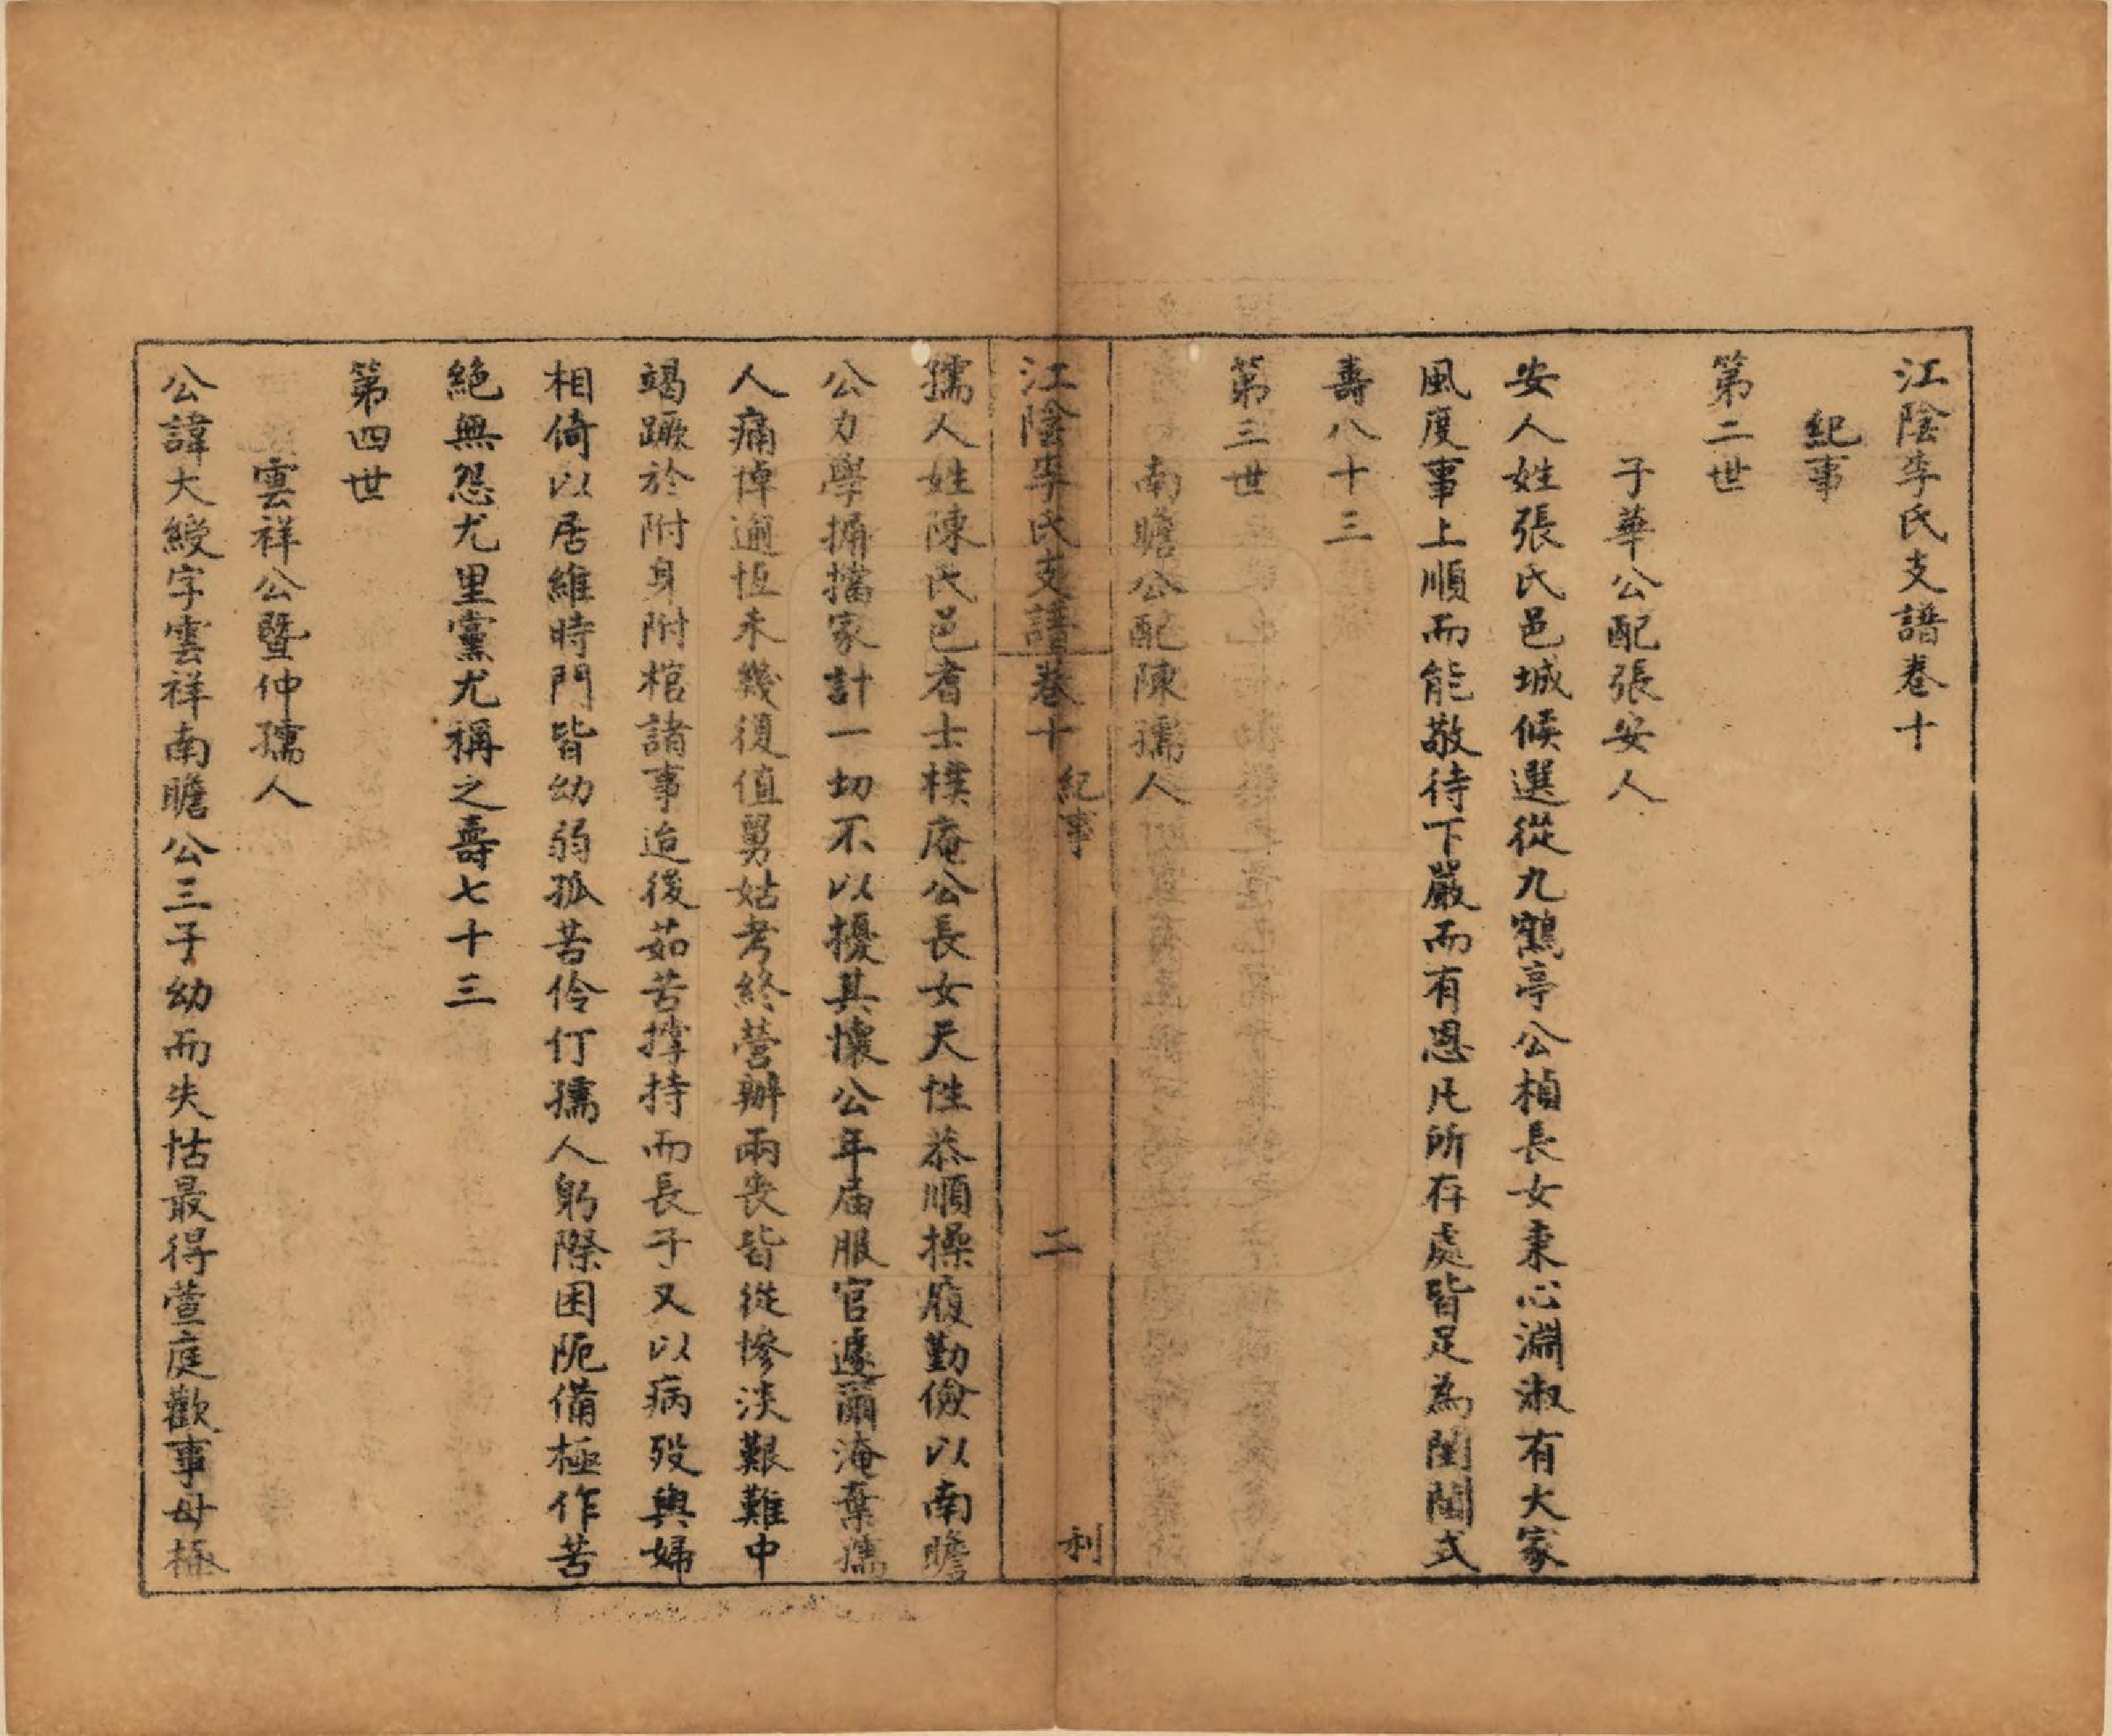 江陰李氏支譜卷十
紀事
第二世
子華公配張安人
安人姓張氏邑城候選從九鶴亭公楨長女秉心淵淑有大家
風度事上順而能敬待下嚴而有恩凡所存處皆足為閨閫式
壽八十三
第三世
南瞻公配陳孺人
江陰李氏支譜卷十 紀事 二 利
孺人姓陳氏邑耆士樸庵公長女天性恭順操履勤儉以南瞻
公力學摒擋家計一切不以擾其懷公年屆服官遽爾淹棄孺
人痛悼逾恆未幾復值舅姑考終營辦兩喪皆從慘淡艱難中
竭蹶於附身附棺諸事迨後茹苦撑持而長子又以病歿與婦
相倚以居維時門皆幼弱孤苦伶仃孺人躬際困阨備極作苦
絕無怨尤里黨尤稱之壽七十三
第四世
雲祥公暨仲孺人
公諱大綬字雲祥南瞻公三子幼而失怙最得萱庭歡事母極